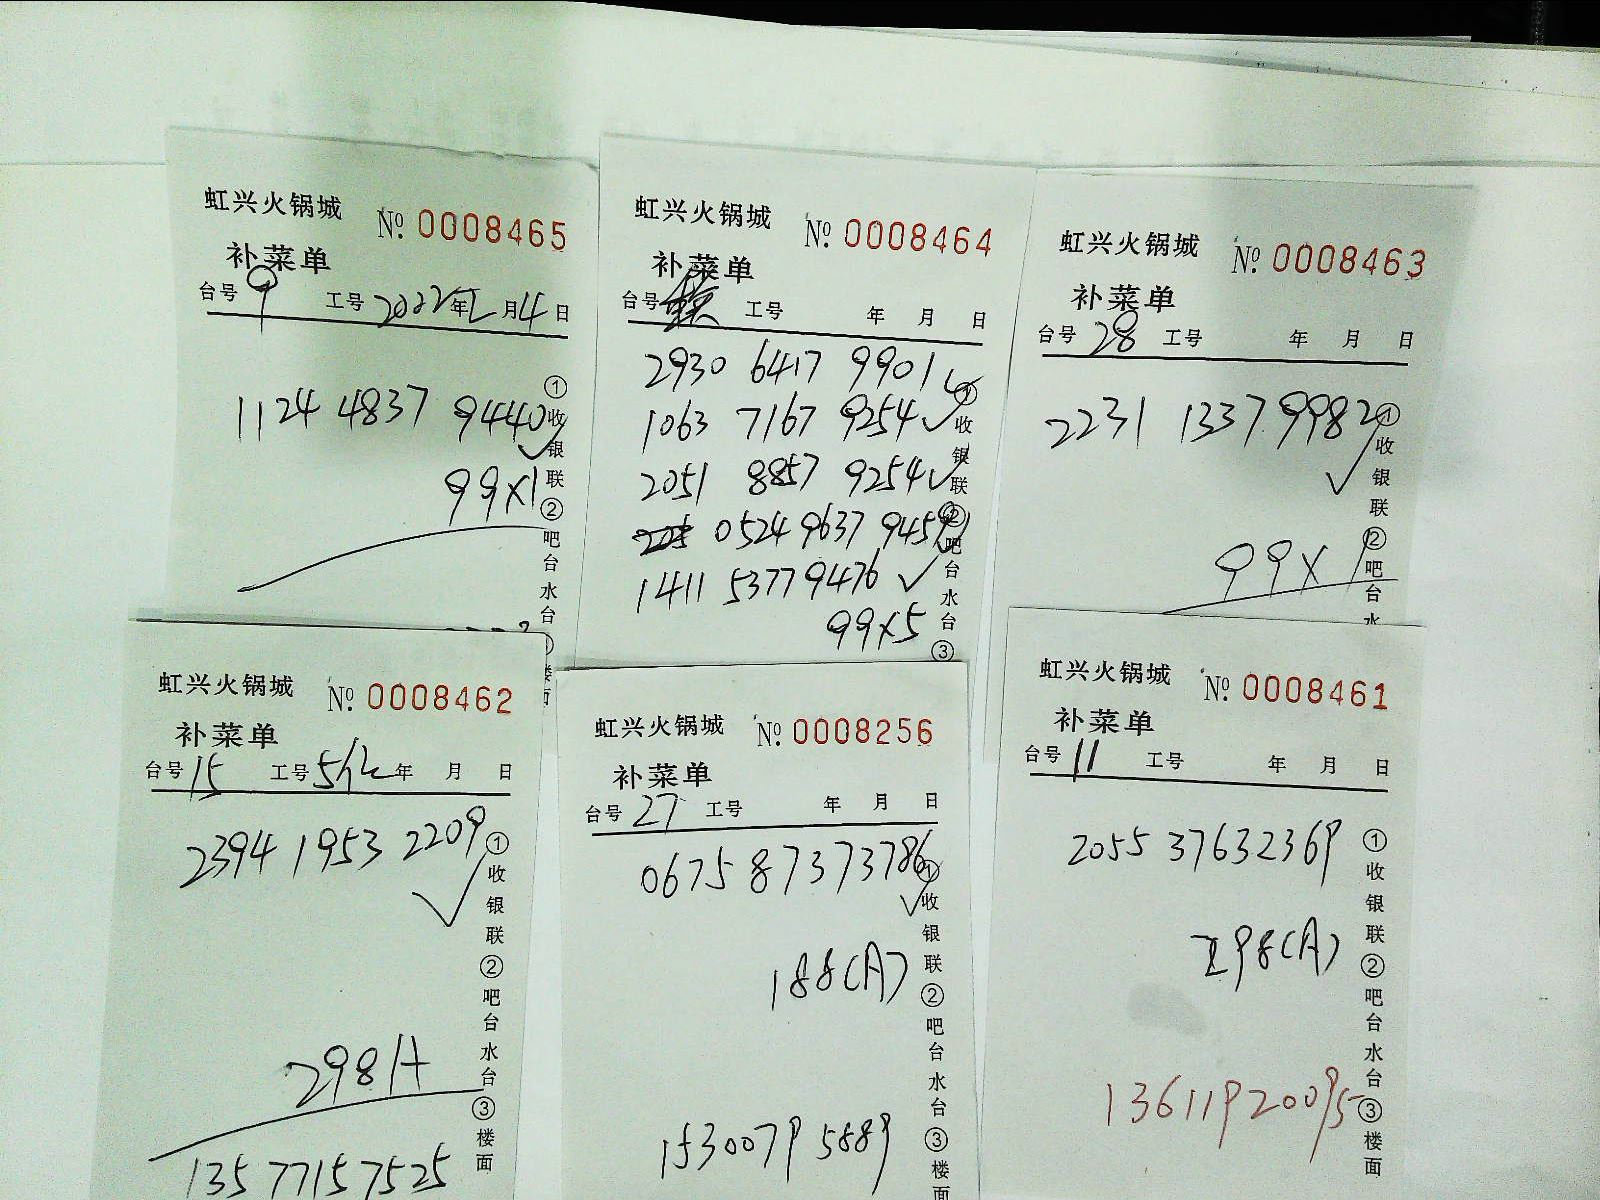 虹兴火锅城 № 0008465
补菜单
台号 9 工号 2022年2月4日
1124 4837 9440
99x1
①收银联②吧台水台
虹兴火锅城 № 0008464
补菜单
台号 工号 年 月 日
2930 6417 9901
1063 7167 9254
2051 8857 9254
0524 9637 9459
1411 5377 9476
99x5
①收银联②吧台水台③
虹兴火锅城 № 0008463
补菜单
台号 28 工号 年 月 日
2231 1337 9982
99x1
①收银联②吧台水
虹兴火锅城 № 0008462
补菜单
台号 15 工号 年 月 日
2394 1953 2209
298A
13577157525
①收银联②吧台水台③楼面
虹兴火锅城 № 0008256
补菜单
台号 27 工号 年 月 日
0675 87373786
188(A)
15300795889
①收银联②吧台水台③楼面
虹兴火锅城 № 0008461
补菜单
台号 11 工号 年 月 日
2055 37632369
298(A)
13611920095
①收银联②吧台水台③楼面